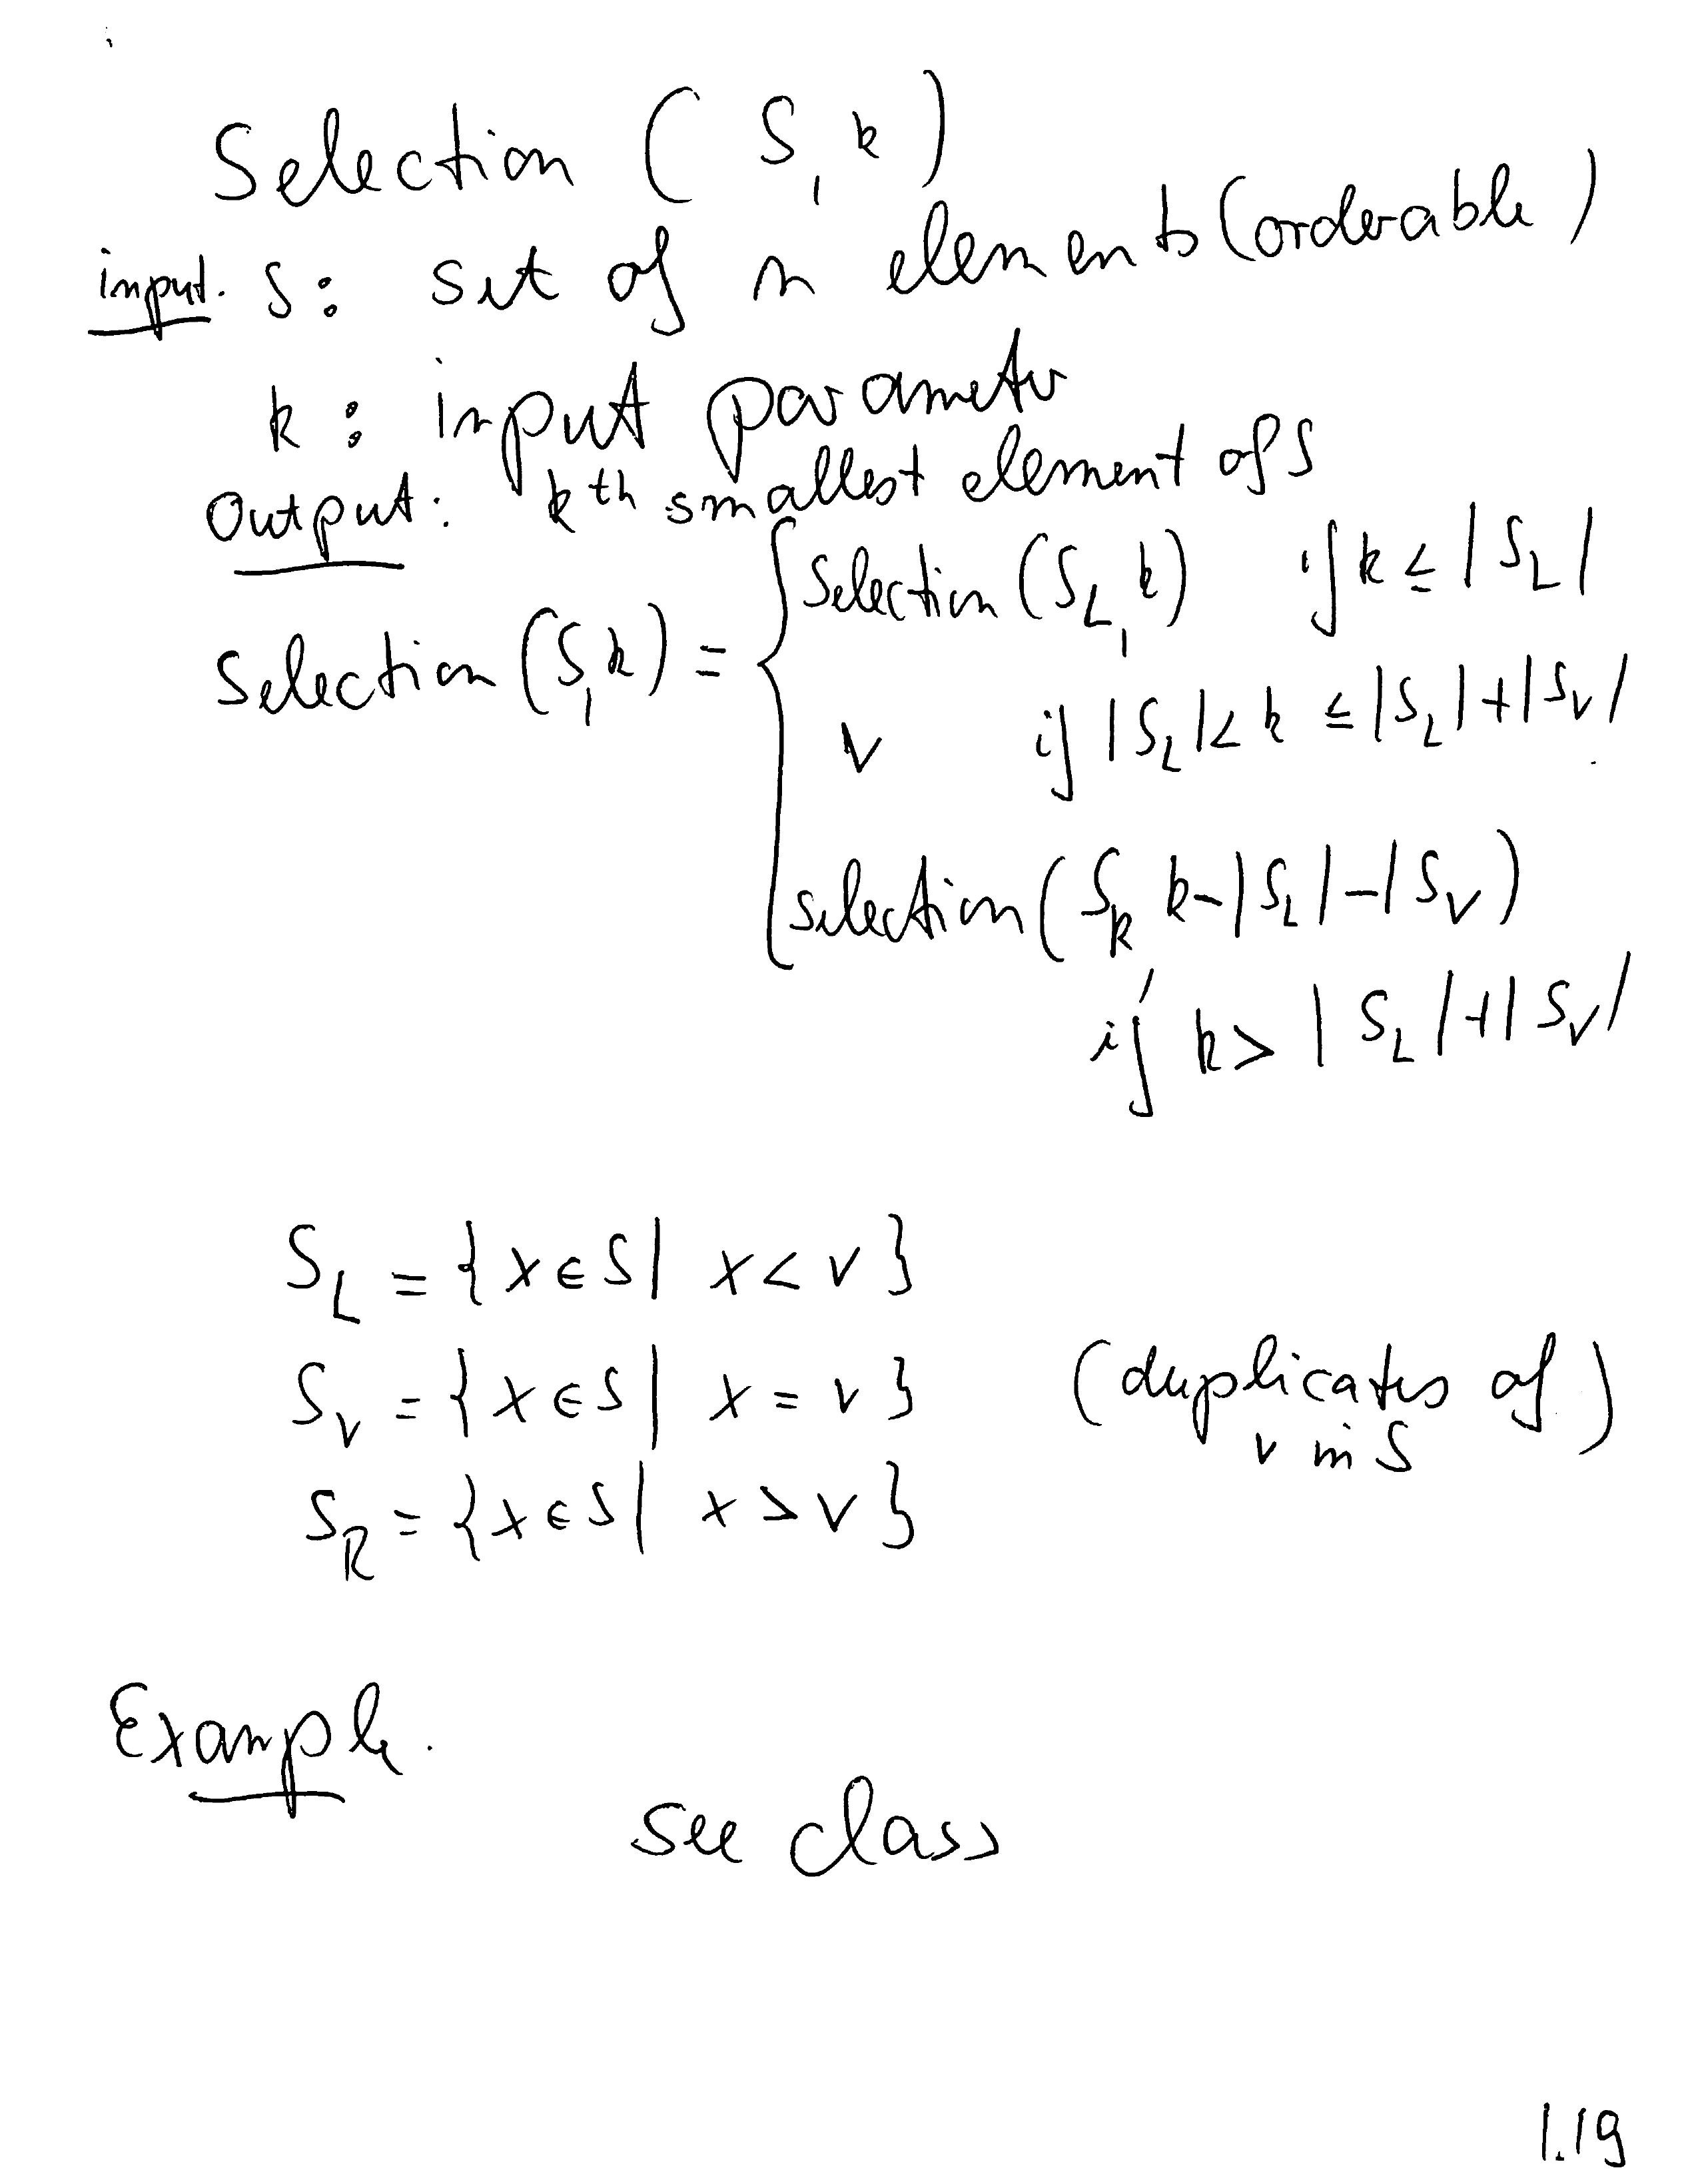 Selection ( S, k )
input. S: set of n elements (orderable)
k: input parameter
Output: kth smallest element of S
Selection (S, k) = { Selection (S_L, k) if k ≤ |S_L|
v if |S_L| < k ≤ |S_L| + |S_v|
selection (S_R, k - |S_L| - |S_v)
if k > |S_L| + |S_v|
S_L = { x ∈ S | x < v }
S_v = { x ∈ S | x = v } (duplicates of v in S)
S_R = { x ∈ S | x > v }
Example.
see class
1.19